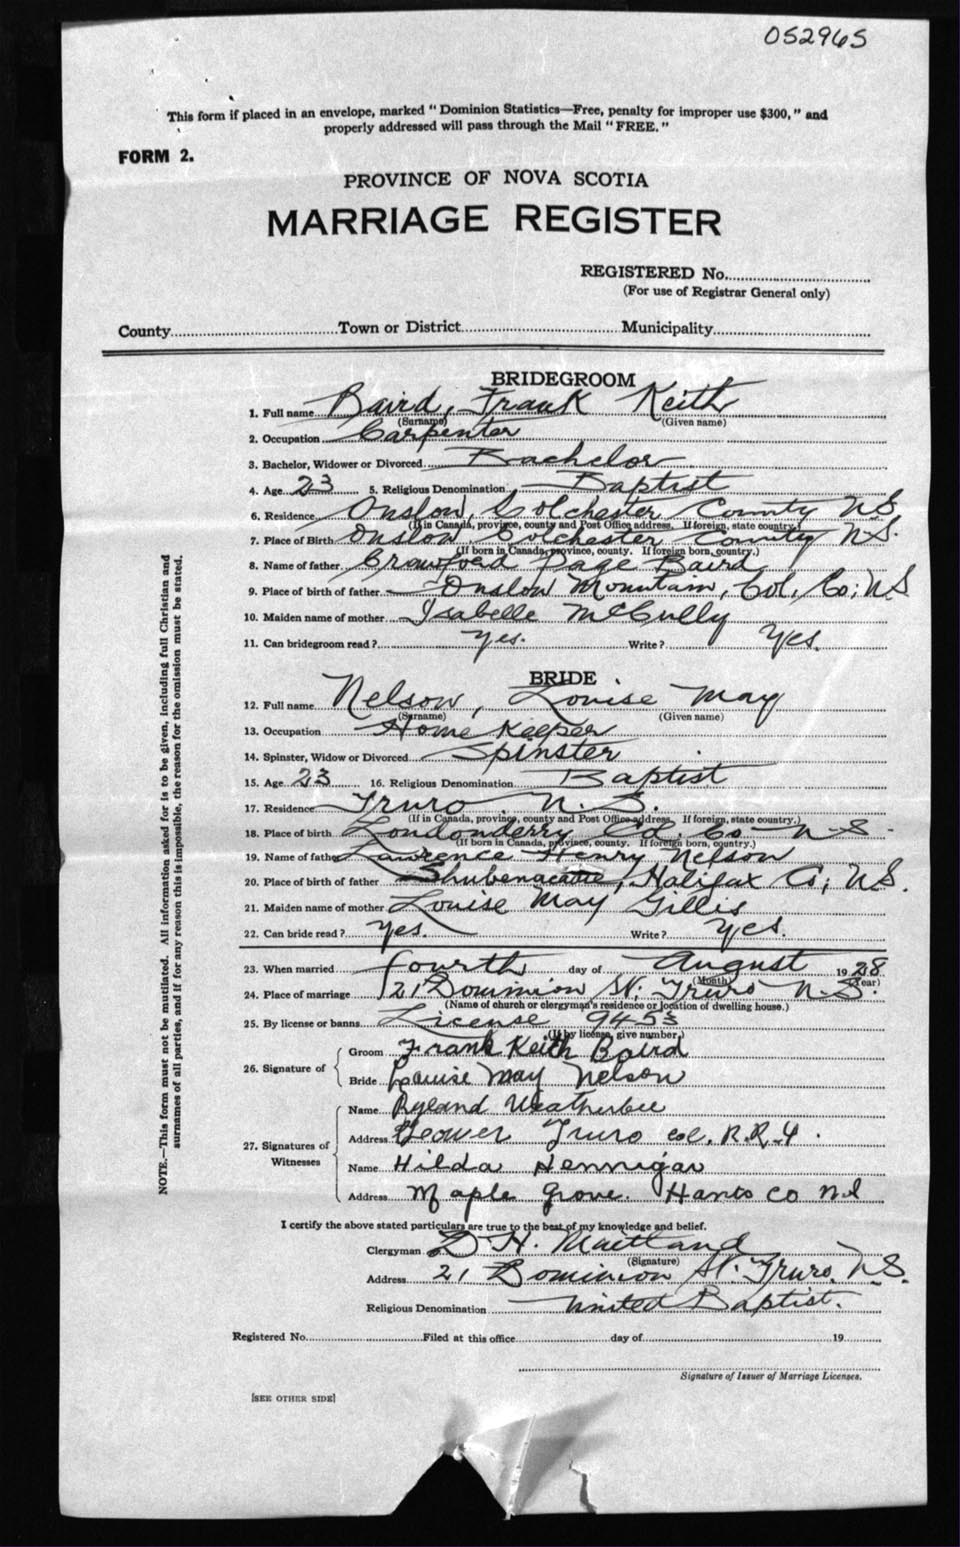 052965
This form if placed in an envelope, marked "Dominion Statistics—Free, penalty for improper use $300," and
properly addressed will pass through the Mail "FREE."
FORM 2.
PROVINCE OF NOVA SCOTIA
MARRIAGE REGISTER
REGISTERED No.
(For use of Registrar General only)
County Town or District Municipality
BRIDEGROOM
1. Full name Baird, Frank Keith
(Surname) (Given name)
2. Occupation Carpenter
3. Bachelor, Widower or Divorced Bachelor
4. Age 23 5. Religious Denomination Baptist
6. Residence Onslow, Colchester County N.S.
(If in Canada, province, county and Post Office address. If foreign, state country.)
7. Place of Birth Onslow Colchester County N.S.
(If born in Canada, province, county. If foreign born, country.)
8. Name of father Crawford Page Baird
9. Place of birth of father Onslow Mountain, Col. Co; N.S
10. Maiden name of mother Isabelle McCully
11. Can bridegroom read? Yes. Write? Yes.
BRIDE
12. Full name Nelson, Louise May
(Surname) (Given name)
13. Occupation Home Keeper
14. Spinster, Widow or Divorced Spinster
15. Age 23 16. Religious Denomination Baptist
17. Residence Truro, N.S.
(If in Canada, province, county and Post Office address. If foreign, state country.)
18. Place of birth Londonderry Col. Co N.S.
(If born in Canada, province, county. If foreign born, country.)
19. Name of father Lawrence Henry Nelson
20. Place of birth of father Shubenacadie, Halifax Co, N.S.
21. Maiden name of mother Louise May Gillis
22. Can bride read? Yes. Write? Yes.
23. When married fourth day of August 1928
(Month) (Year)
24. Place of marriage 21 Dominion St. Truro N.S.
(Name of church or clergyman's residence or location of dwelling house.)
25. By license or banns License 9453
(If by license, give number)
26. Signature of Groom Frank Keith Baird
Bride Louise May Nelson
27. Signatures of Witnesses Name Ryland Weatherbee
Address Truro col. R.R.4.
Name Hilda Hennigar
Address Maple Grove. Hants Co N.S
I certify the above stated particulars are true to the best of my knowledge and belief.
Clergyman D H. Maitland
(Signature)
Address 21 Dominion St. Truro, N.S.
Religious Denomination United Baptist.
Registered No. Filed at this office day of 19
Signature of Issuer of Marriage Licenses.
[SEE OTHER SIDE]
NOTE.—This form must not be mutilated. All information asked for is to be given, including full Christian and
surnames of all parties, and if for any reason this is impossible, the reason for the omission must be stated.